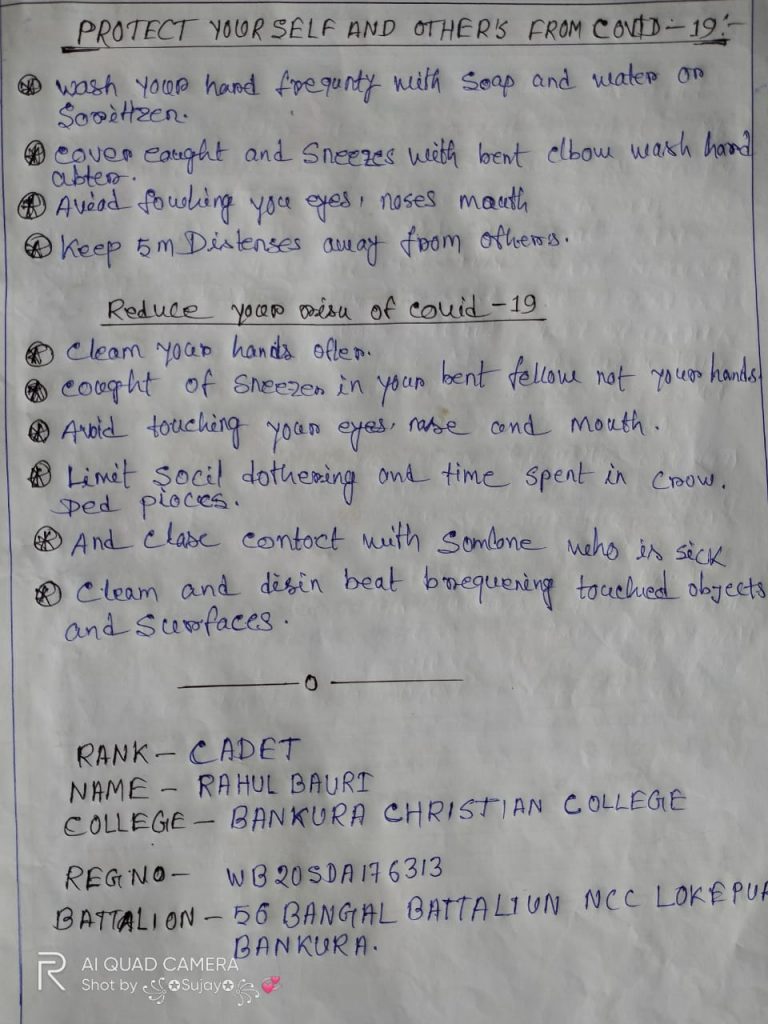 PROTECT YOUR SELF AND OTHER'S FROM COVID-19:-
wash your hand frequnty with Soap and water or
cover caught and Sneezes with bent elbow wash hand
abter.
Avoid touching you eyes, noses mouth
Keep 5m Distenses away from others.
Reduce your of covid-19
Cleam your hands often.
cought of Sneezes in your bent fellow not your hands
Avoid touching your eyes, nose and mouth.
Limit Socil dothering and time spent in crow.
ded places.
And Close contact with Somlone who is sick
Cleam and disin beat brequening touched objects
and Surfaces.
0
RANK - CADET
NAME - RAHUL BAURI
COLLEGE - BANKURA CHRISTIAN COLLEGE
REGNO- WB20SDA176313
BATTALION - 56 BANGAL BATTALIUN NCC LOKEPUR
BANKURA.
AI QUAD CAMERA
Shot by Sujay